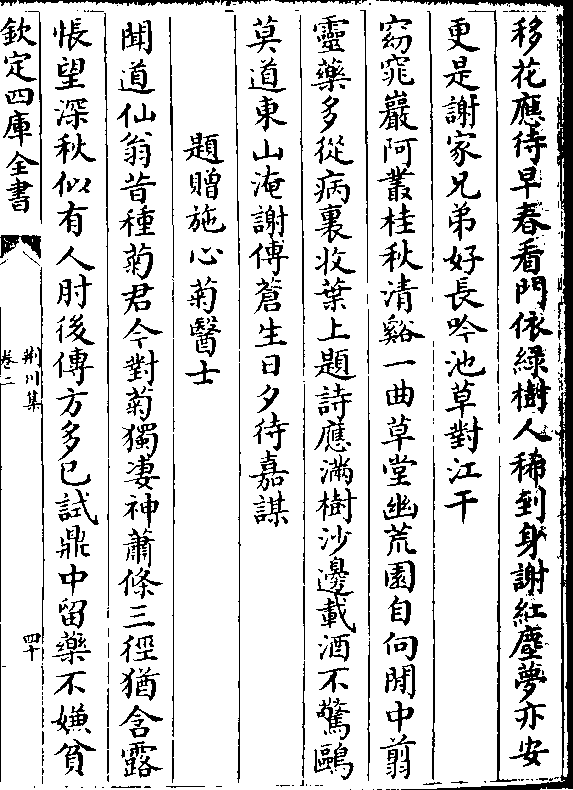 移花應待早春看門依緑樹人稀到身謝紅塵夢亦安
更是謝家兄弟好長吟池草對江干
窈窕巖阿叢桂秋清谿一曲草堂幽荒園自向閒中翦
靈藥多從病裏收葉上題詩應滿樹沙邊載酒不驚鷗
莫道東山淹謝傅蒼生日夕待嘉謀
題贈施心菊醫士
聞道仙翁昔種菊君今對菊獨凄神蕭條三徑猶含露
悵望深秋似有人肘後傳方多已試鼎中留藥不嫌貧
欽定四庫全書
荆川集
卷二
四十